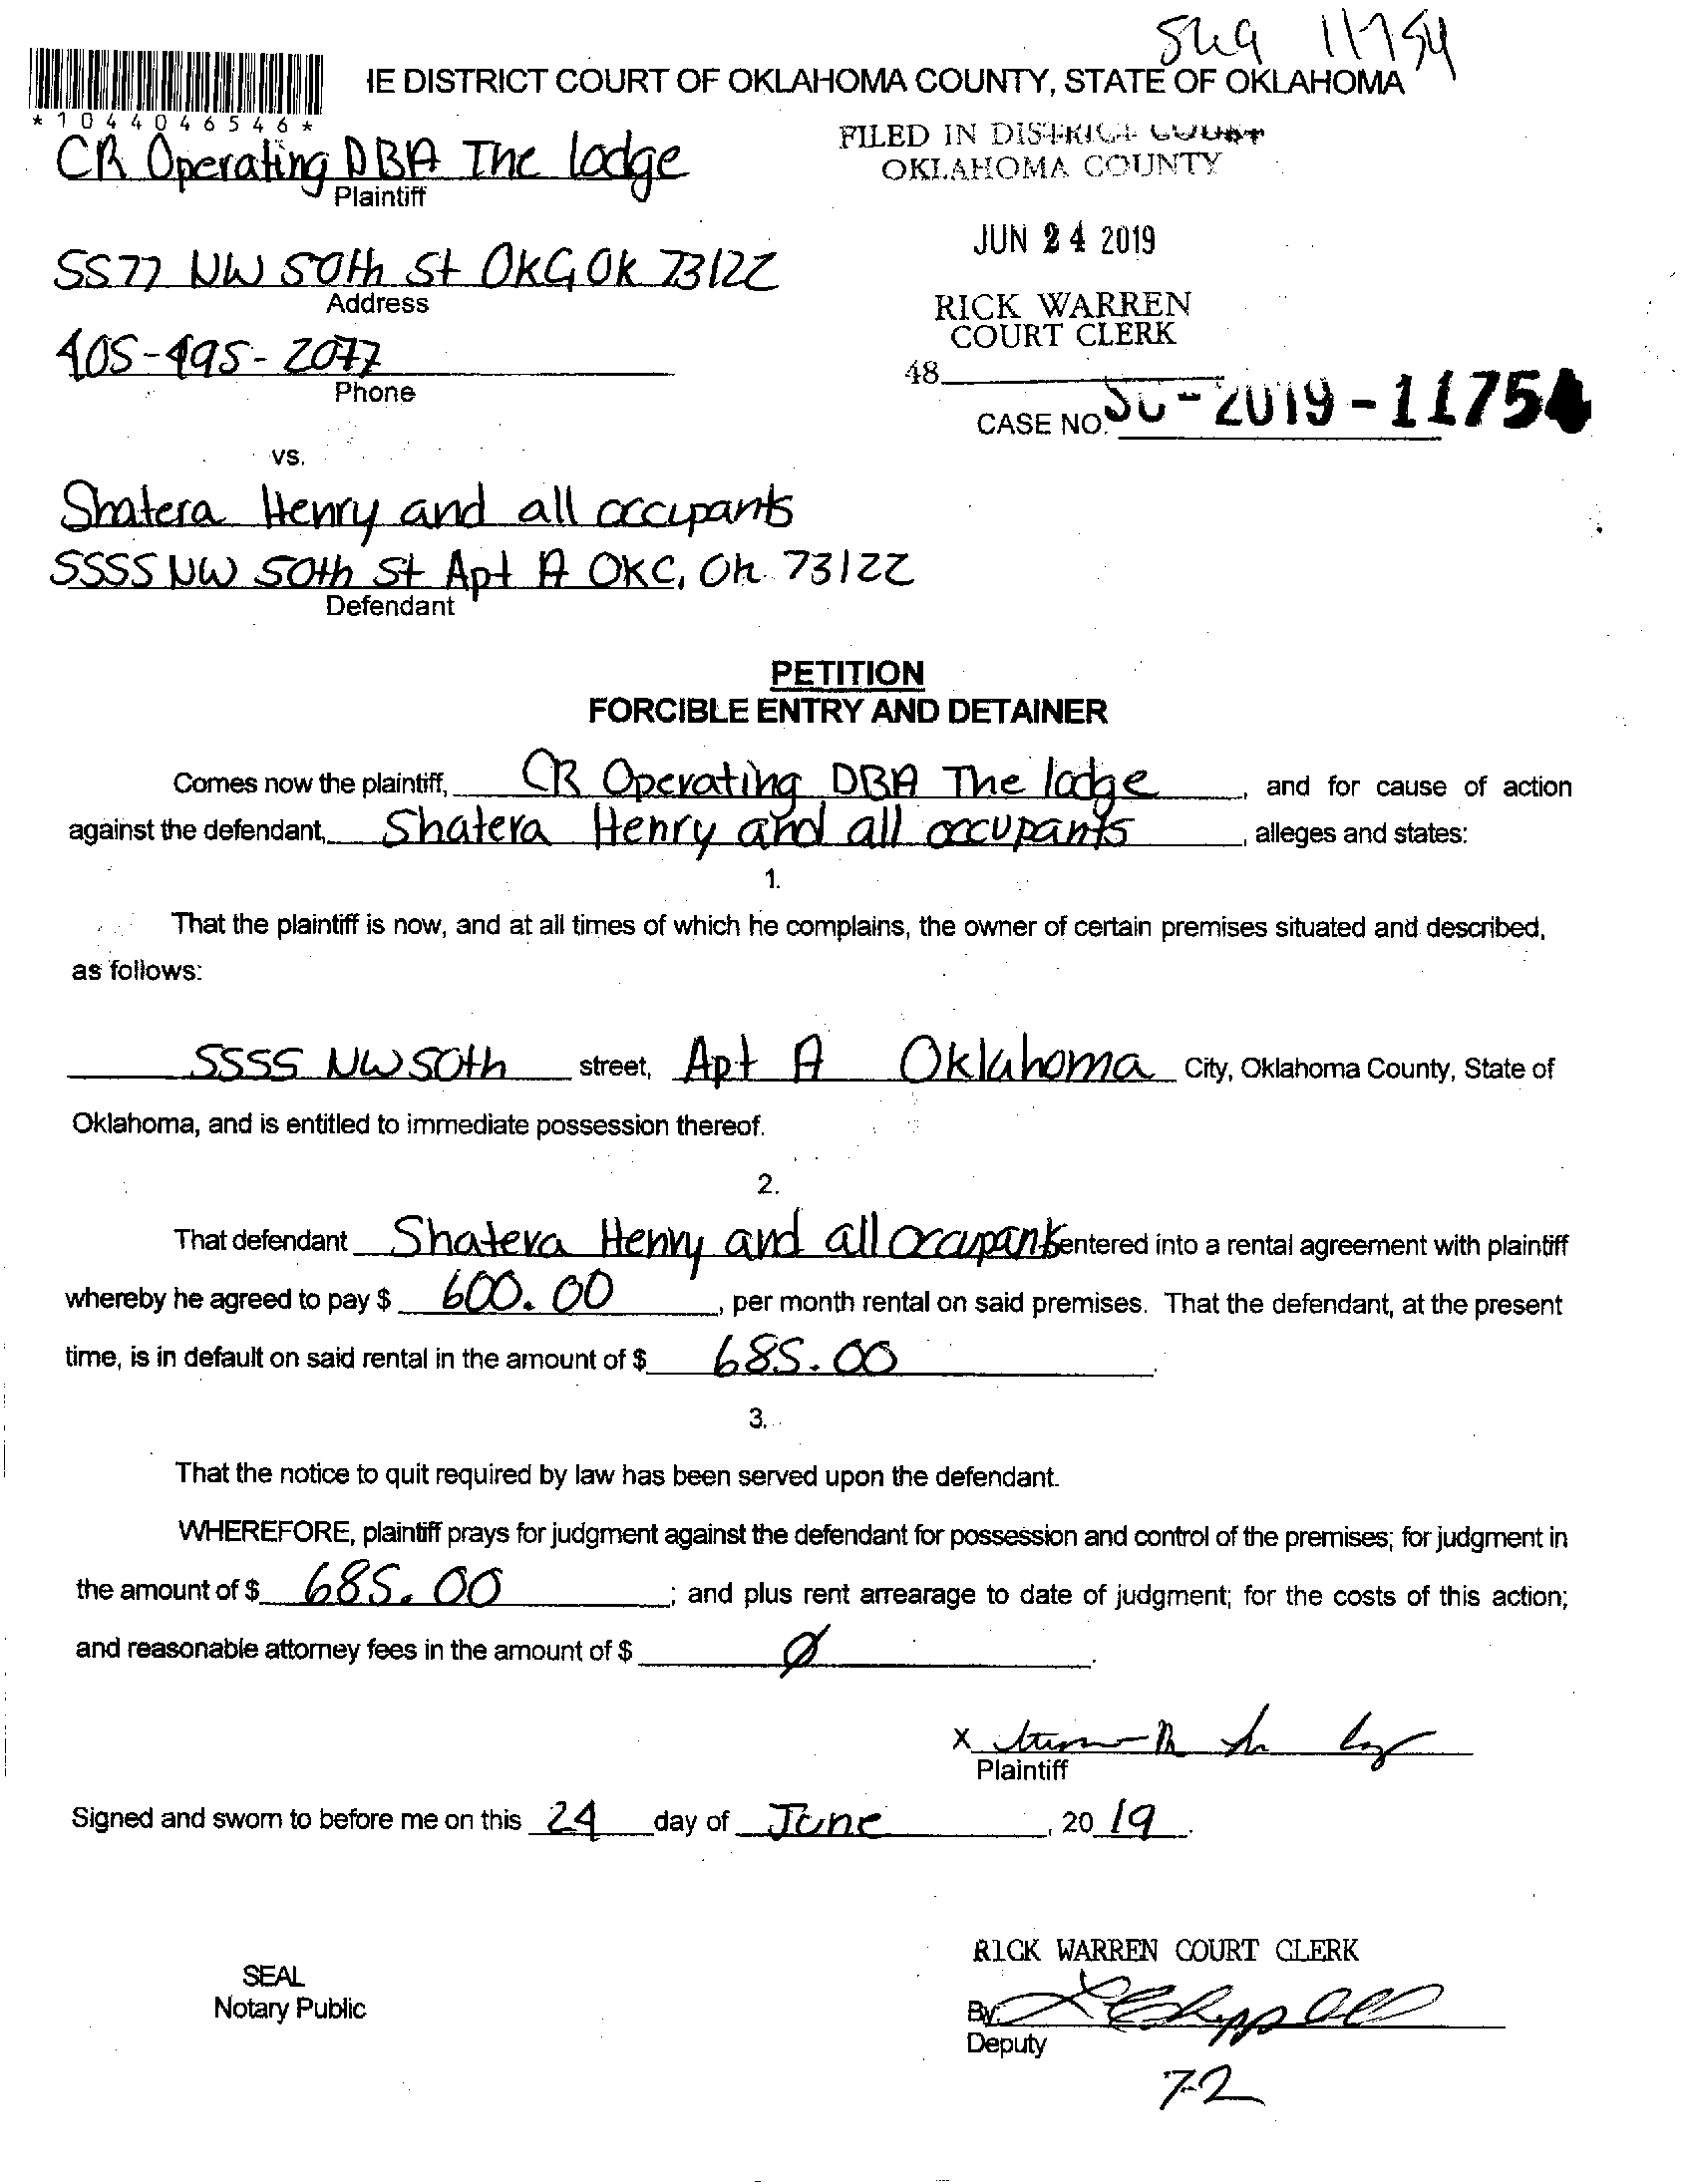 11754
IE DISTRICT COURT OF OKLAHOMA COUNTY, STATE OF OKLAHOMA
*1044046546*
FILED IN DISTRICT COURT
OKLAHOMA COUNTY
CR Operating DBA The lodge
Plaintiff
JUN 24 2019
5577 NW 50th St OKC, OK 73122
Address
RICK WARREN
COURT CLERK
405-495-2077
Phone
48
CASE NO. SC-2019-11754
vs.
Shatera Henry and all occupants
5555 NW 50th St Apt A OKC, Ok 73122
Defendant
PETITION
FORCIBLE ENTRY AND DETAINER
Comes now the plaintiff, CR Operating DBA The lodge, and for cause of action
against the defendant, Shatera Henry and all occupants, alleges and states:
1.
That the plaintiff is now, and at all times of which he complains, the owner of certain premises situated and described,
as follows:
5555 NW 50th street, Apt A Oklahoma City, Oklahoma County, State of
Oklahoma, and is entitled to immediate possession thereof.
2.
That defendant Shatera Henry and all occupants entered into a rental agreement with plaintiff
whereby he agreed to pay $ 600.00, per month rental on said premises. That the defendant, at the present
time, is in default on said rental in the amount of $ 685.00.
3.
That the notice to quit required by law has been served upon the defendant.
WHEREFORE, plaintiff prays for judgment against the defendant for possession and control of the premises; for judgment in
the amount of $ 685.00; and plus rent arrearage to date of judgment; for the costs of this action;
and reasonable attorney fees in the amount of $ Ø.
X
Plaintiff
Signed and sworn to before me on this 24 day of June, 20 19.
RICK WARREN COURT CLERK
SEAL
Notary Public
By: Chappell
Deputy
72